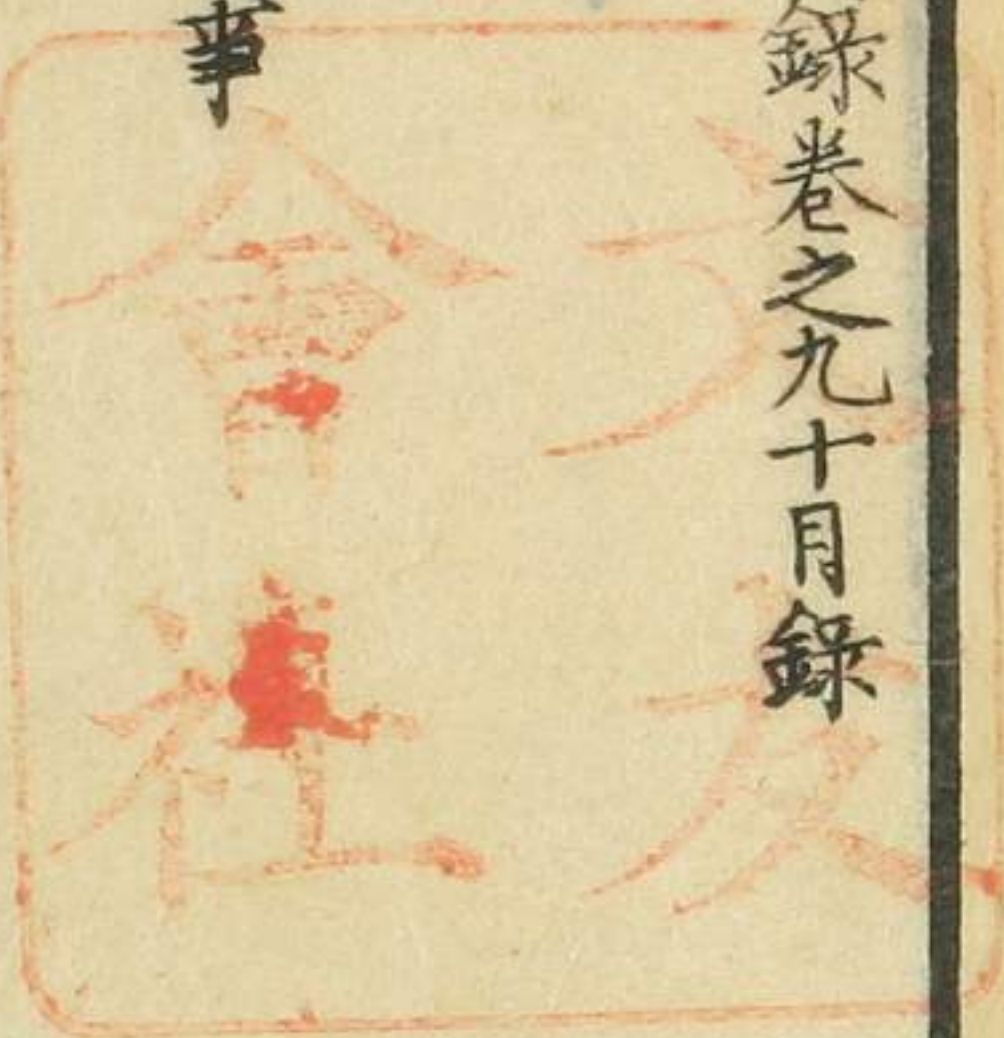 錄卷之九十月錄
事
文友
會社